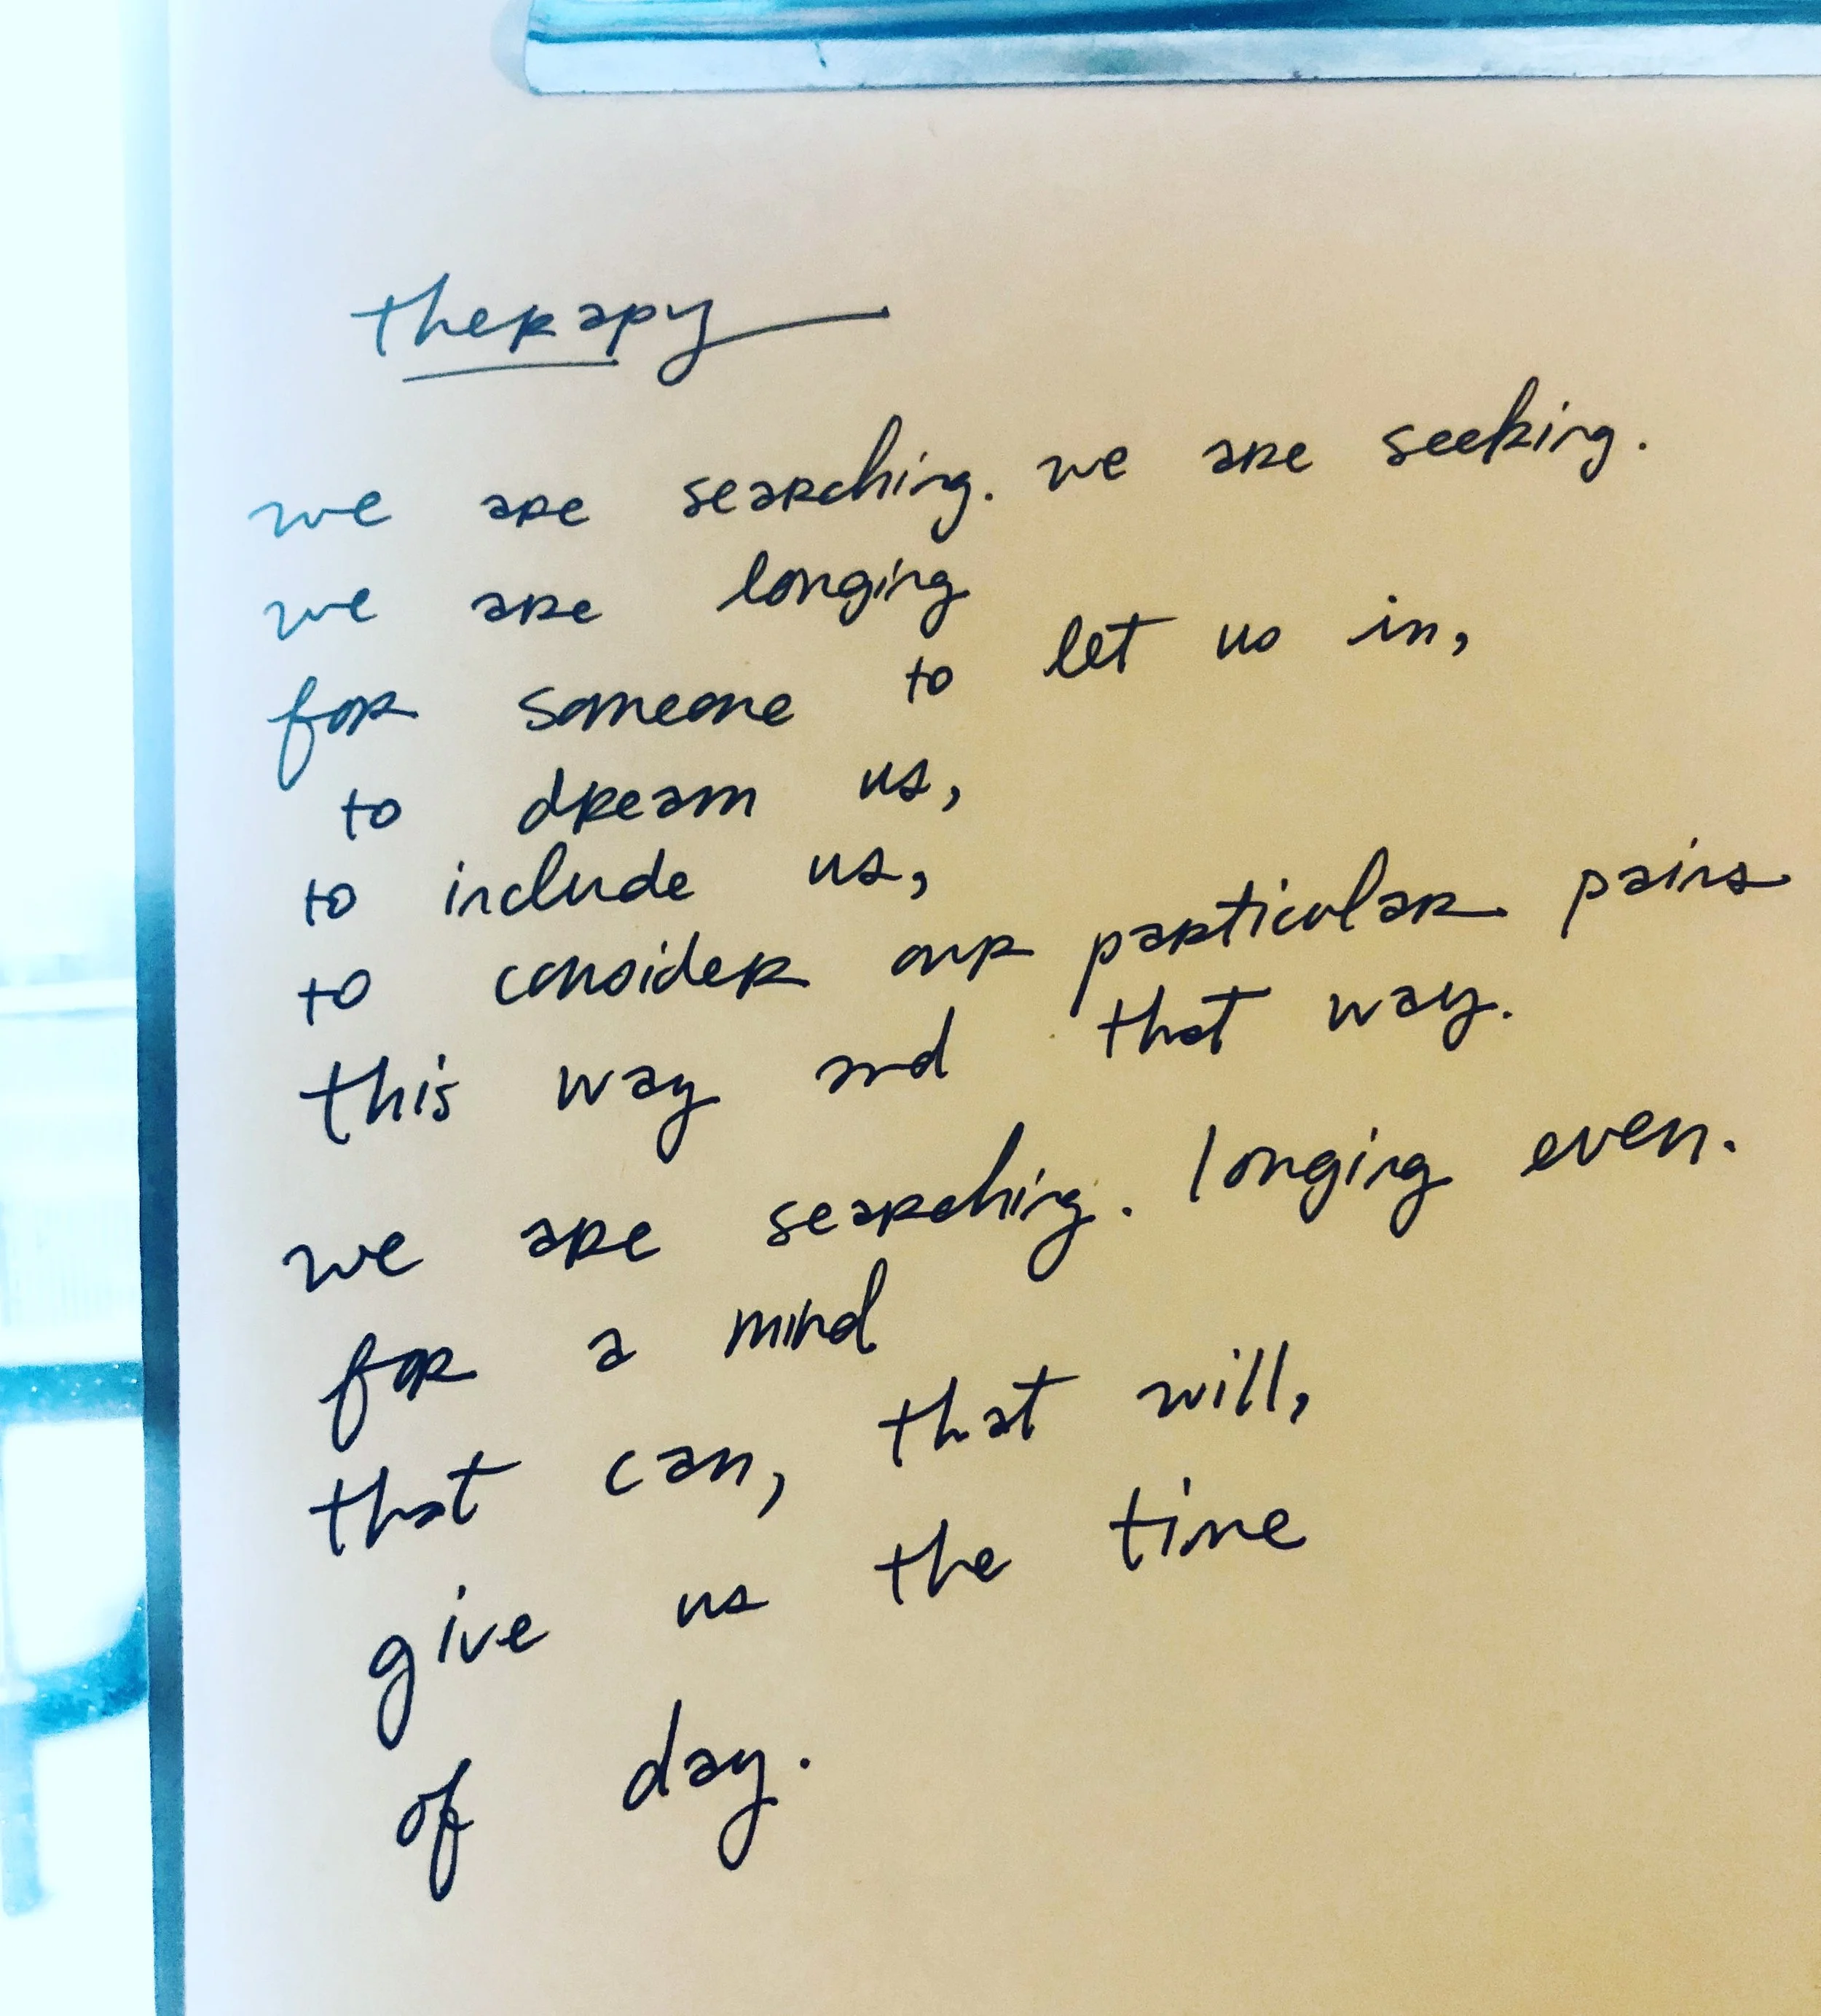 therapy
we are searching. we are seeking.
we are longing
for someone to let us in,
to dream us,
to include us,
to consider our particular pains
this way and that way.
we are searching. longing even.
for a mind
that can, that will,
give us the time
of day.